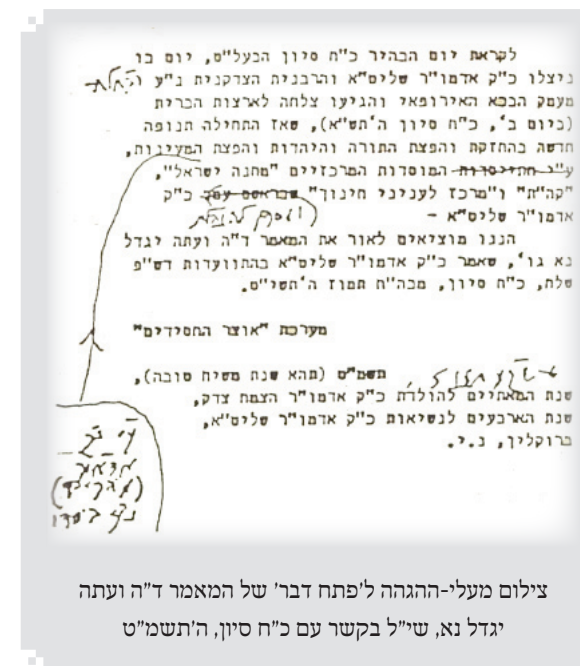 לקראת יום הבהיר כ"ח סיון הבעל"ט, יום בו
ניצלו כ"ק אדמו"ר שליט"א והרבנית הצדקנית נ"ע
מעמק הבכא האירופאי והגיעו צלחה לארצות הברית
(ביום ב', כ"ח סיון ה'תש"א), שאז התחילה תנופה
חדשה בהחזקת והפצת התורה והיהדות והפצת המעינות,
ע"י התייסדות המוסדות המרכזיים "מחנה ישראל",
"קה"ת" ו"מרכז לעניני חינוך" שבראשם עמד כ"ק
אדמו"ר שליט"א -
הננו מוציאים לאור את המאמר ד"ה ועתה יגדל
נא גו', שאמר כ"ק אדמו"ר שליט"א בהתוועדות דש"פ
שלח, כ"ח סיון, מבה"ח תמוז ה'תשי"ט.
מערכת "אוצר החסידים"
תשמ"ט (תהא שנת משיח טובה),
שנת המאתיים להולדת כ"ק אדמו"ר הצמח צדק,
שנת הארבעים לנשיאות כ"ק אדמו"ר שליט"א,
ברוקלין, נ.י.
צילום מעלי-ההגהה ל'פתח דבר' של המאמר ד"ה ועתה
יגדל נא, שי"ל בקשר עם כ"ח סיון, ה'תשמ"ט